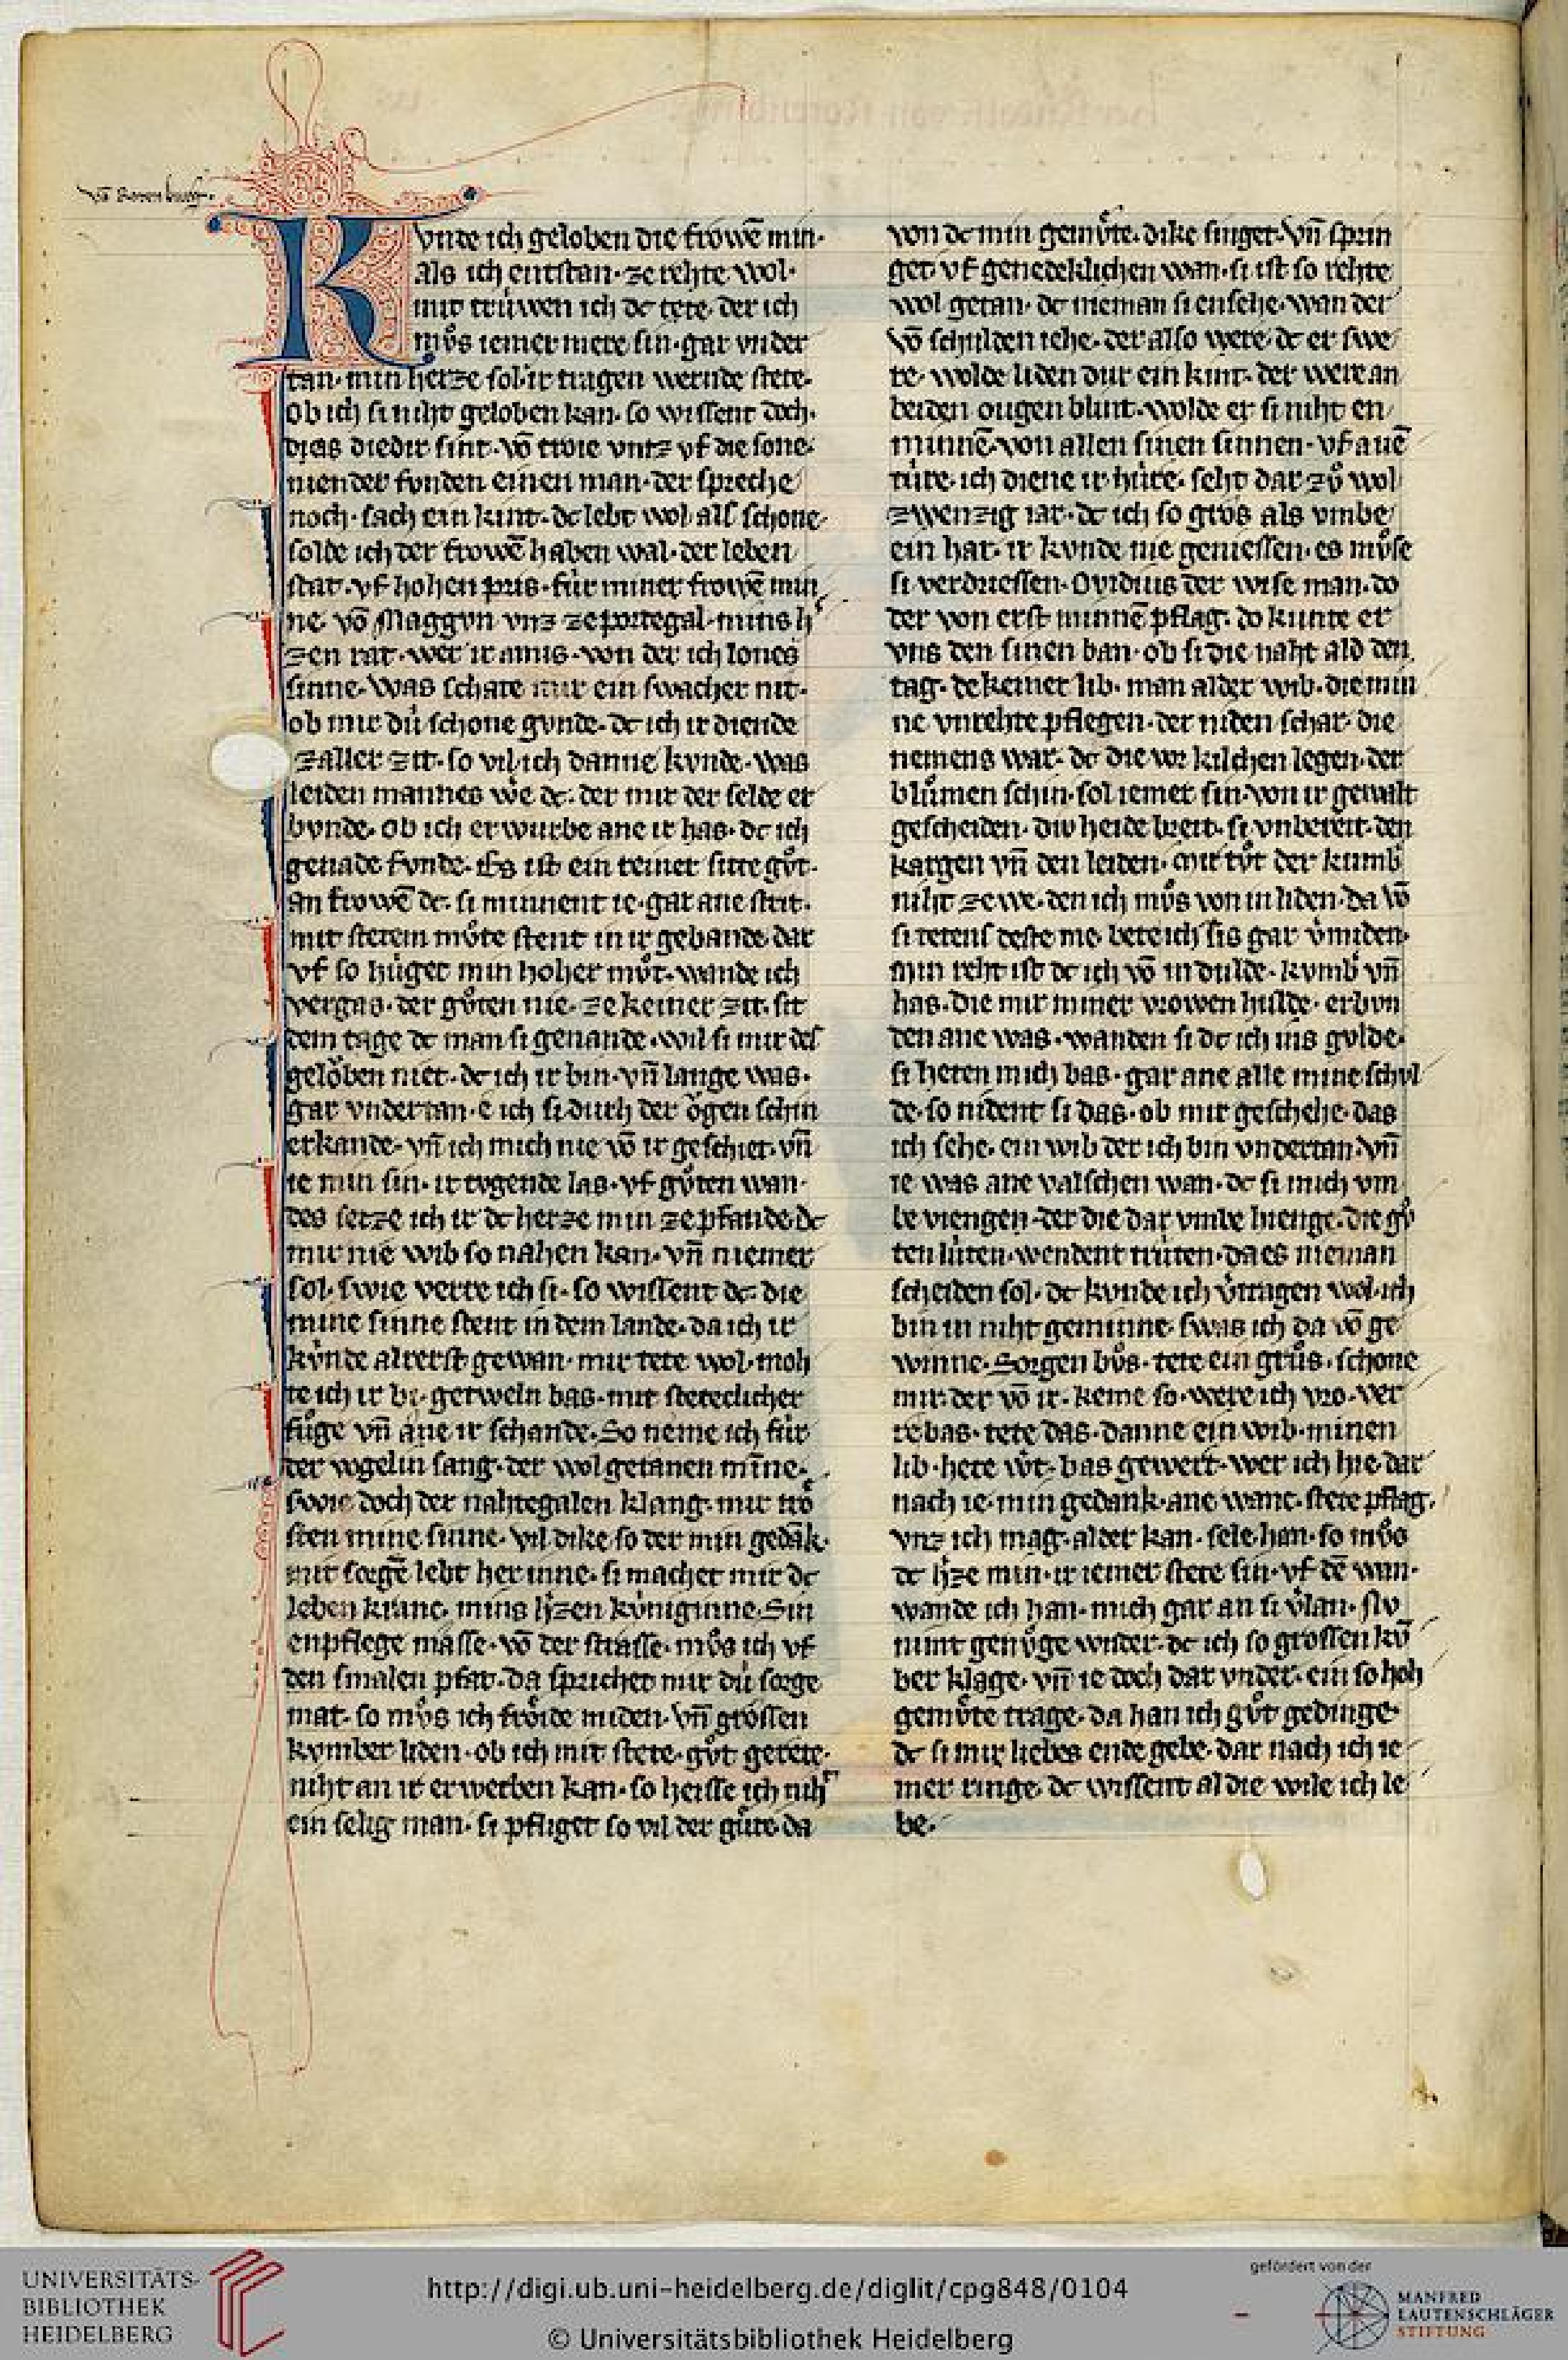 võ Rotenburg.
Kvnde ich geloben die frowē min·
als ich entstan· ze rehte wol·
mit trúwen ich dc tete· der ich
mv̊s iemer mere sin· gar vnder
tan· min herze sol ir tragen wernde stete·
Ob ich si niht geloben kan· so wissent doch·
das die dir sint· võ troie vntz vf die sone·
niender fvnden einen man· der spreche
noch· sach ein kint· dc lebt wol als schone·
solde ich der frowē haben wal· der leben
stat· vf hohen pris· für miner frowē min
ne· võ Maggvn vnz ze portegal· mins h͛
zen rat· wer ir amis· von der ich lones
sinne· Was schate mir ein swacher nit·
ob mir dú schone gvnde· dc ich ir diende
zaller zit· so vil ich danne kvnde· was
leiden mannes we dc· der mir der selde er
bvnde· Ob ich er wurbe ane ir has· dc ich
genade fvnde· Es ist ein reiner sitte gv̊t·
an frowē dc· si minnent ie· gar ane strit·
mit stetem mv̊te stent in ir gebande· dar
vf so húget min hoher mv̊t· wande ich
vergas· der gv̊ten nie· ze keiner zit· sit
dem tage dc man si genande· wil si mir des
gelöben niet· dc ich ir bin· vn̄ lange was·
gar vndertan· e ich si durh der ögen schin
erkande· vn̄ ich mich nie võ ir geschiet· vn̄
ie min sin· ir tvgende las· vf gv̊ten wan·
des setze ich ir dc herze min ze pfande· dc
mir nie wib so nahen kan· vn̄ niemer
sol· swie verre ich si· so wissent dc· die
mine sinne stent in dem lande· da ich ir
kv́nde alrerst gewan· mir tete wol· moh
te ich ir bi· getweln bas· mit steteclicher
fůge vn̄ ane ir schande· So neme ich fúr
der vogelin sang· der wolgetanen mīne·
swie doch der nahtegalen klang· mir trö
sten mine sinne· vil dike so der min gedāk·
mit sorgē lebt her inne· si machet mir dc
leben kranc· mins h͛zen kv́niginne· Sin
enpflege masse· võ der strasse· mv̊s ich vf
den smalen pfat· da sprichet mir dú sorge
mat· so mv̊s ich fröide miden· vn̄ grossen
kvmber liden· ob ich mit stete· gv̊t gerete·
niht an ir erwerben kan· so heisse ich niht
ein selig man· si pfliget so vil der gůte· da
von dc min gemv̊te· dike singet· vn̄ sprin
get· vf genedeklichen wan· si ist so rehte
wol getan· dc nieman si ensehe· wan der
võ schulden iehe· der also were· dc er swe
re· wolde liden dur ein kint· der were an
beiden ougen blint· wolde er si niht en
minnē· von allen sinen sinnen· vf auē
túre· ich diene ir húre· seht dar zů wol
zwenzig iar· dc ich so gros als vmbe
ein har· ir kvnde nie geniessen· es mv̊se
si verdriessen· Ovidius der wise man· do
der von erst minnē pflag· do kunte er
vns den sinen ban· ob si die naht ald den
tag· dekeiner lib· man alder wib· die min
ne vnrehte pflegen· der niden schar· die
nemens war· dc die vor kilchen legen· der
blůmen schin· sol iemer sin· von ir gewalt
gescheiden· diu heide breit· si vnbereit· den
kargen vn̄ den leiden· mir tůt der kumb͛
niht ze we· den ich mv̊s von in liden· da võ
si tetens deste me· bete ich sis gar v͛miden·
min reht ist dc ich võ in dulde· kvmb͛ vn̄
has· die mir miner vrowen hulde· erbvn
den ane was· wanden si dc ich ins gvlde·
si heten mich bas· gar ane alle mine schvl
de· so nident si das· ob mir geschehe· das
ich sehe· ein wib der ich bin vndertan· vn̄
ie was ane valschen wan· dc si mich vm
be viengen· der die dar vmbe hienge· die gv̊
ten lúten· wendent trúten· da es nieman
scheiden sol· dc kvnde ich v͛tragen wol· ich
bin in niht geminne· swas ich da võ ge
winne· Sorgen bv̊s· tete ein grůs· schone
mir· der võ ir· keme so· were ich vro· ver
re bas· tete das· danne ein wib· minen
lib· hete vv͛t· bas gewert· wer ich hie· dar
nach ie· min gedank· ane wanc· stete pflag·
vnz ich mag· alder kan· sele· han· so mv̊s
dc h͛ze min· ir iemer stete sin· vf dē wan·
wande ich han· mich gar an si v͛lan· Nv
nimt genv̊ge wnder· dc ich so grossen kv̄
ber klage· vn̄ ie doch dar vnder· ein so hoh
gemv̊te trage· da han ich gv̊t gedinge·
dc si mir liebes ende gebe· dar nach ich ie
mer ringe· dc wissent al die wile ich le
be·
UNIVERSITÄTS-
BIBLIOTHEK
HEIDELBERG
http://digi.ub.uni-heidelberg.de/diglit/cpg848/0104
© Universitätsbibliothek Heidelberg
gefördert von der
MANFRED
LAUTENSCHLÄGER
STIFTUNG